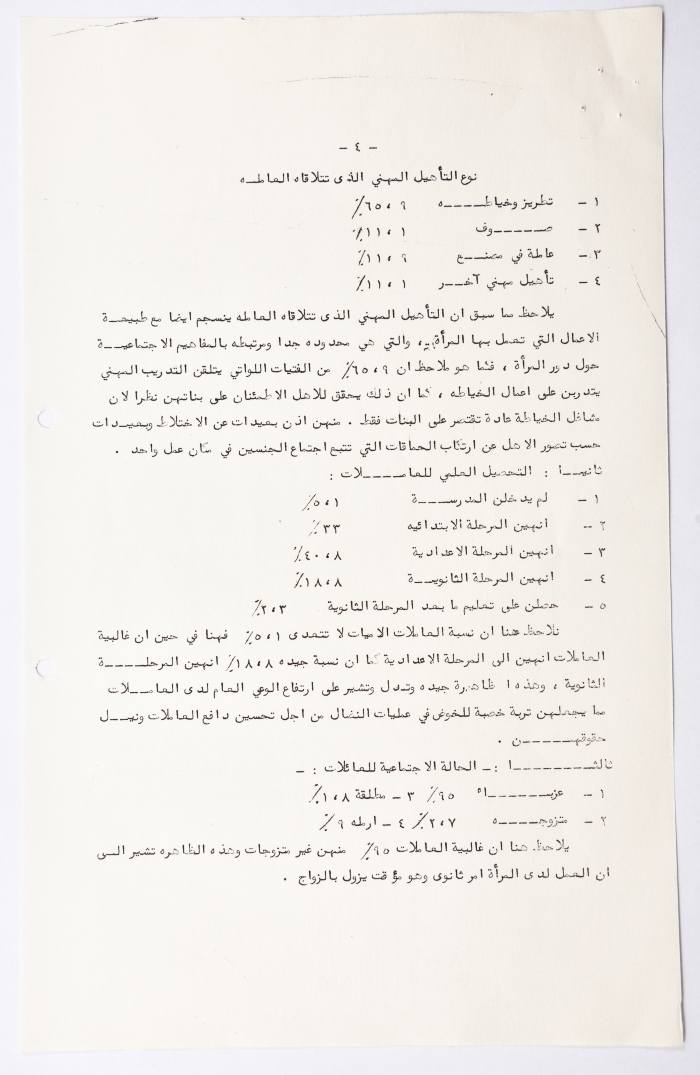 - ٤ -
نوع التأهيل المهني الذى تتلاقاه العاطـه
١ - تطريز وخياطــــه ٦٥،٩٪
٢ - صــــوف ١١،١٪
٣ - عاطة في مصنــع ١١،٩٪
٤ - تأهيل مهني آخــر ١١،١٪
يلاحظ مما سبق ان التأهيل المهني الذى تتلاقاه العاطه ينسجم ايضا مع طبيعـــة
الاعمال التي تعمل بها المرأة، والتي هي محدوده جدا ومرتبطه بالمفاهيم الاجتماعيـــة
حول دور المرأة ، فكما هو ملاحظ ان ٦٥،٩٪ من الفتيات اللواتي يتلقن التدريب المهني
يتدربن على اعمال الخياطه ، كما ان ذلك يحقق للاهل الاطمئنان على بناتهن نظرا لان
مشاغل الخياطة عادة تقتصر على البنات فقط . منهن اذن بعيدات عن الاختلاط وبعيـدات
حسب تصور الاهل عن ارتكاب الحماقات التي تتبع اجتماع الجنسين في مكان عمل واحد .
ثانيــا : التحصيل العلمي للعامــــلات :
١ - لم يدخلن المدرســـة ٥،١٪
٢ - انهين المرحلة الابتدائيه ٣٣٪
٣ - انهين المرحلة الاعدادية ٤٠،٨٪
٤ - انهين المرحلة الثانويــة ١٨،٨٪
٥ - حصلن على تعليم ما بعد المرحلة الثانوية ٢،٣٪
نلاحظ هنا ان نسبة العاملات الاميات لا تتعدى ٥،١٪ فهنا في حين ان غالبية
العاملات انهين الى المرحلة الاعدادية كما ان نسبة جيده ١٨،٨٪ انهين المرحلــــة
الثانوية ، وهذه ا ظاهرة جيده وتدل وتشير على ارتفاع الوعي العام لدى العامــــلات
مما يجعلهن تربة خصبة للخوض في عمليات النضال من اجل تحسين دافع العاملات ونيــل
حقوقهـــــن .
ثالثـــــــا :- الحالة الاجتماعية للعائلات : -
١ - عزبــــــاء ٩٥٪ ٣ - مطلقة ١،٨٪
٢ - متزوجـــــه ٢،٧٪ ٤ - ارمله ٩٪
يلاحظ هنا ان غالبية العاملات ٩٥٪ منهن غير متزوجات وهذه الظاهره تشير الــى
ان العمل لدى المرأة امر ثانوى وهو مؤقت يزول بالزواج .